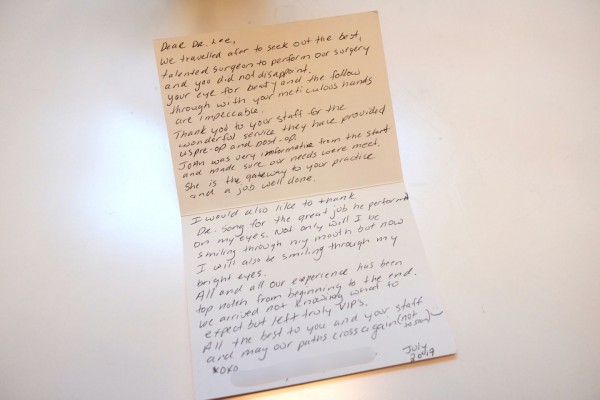 Dear Dr. Lee,
We travelled afar to seek out the best,
talented surgeon to perform our surgery
and you did not disappoint.
Your eye for beaty and the follow
through with your meticulous hands
are impeccable.
Thank you to your staff for the
wonderful service they have provided
us pre-op and post-op.
JoAn was very informative from the start
and made sure our needs were meet.
She is the gateway to your practice
and a job well done.
I would also like to thank
Dr. Song for the great job he performed
on my eyes. Not only will I be
smiling through my mouth but now
I will also be smiling through my
bright eyes.
All and all our experience has been
top notch from beginning to the end.
We arrived not knowing what to
expect but left truly VIPs.
All the best to you and your staff
and may our paths cross again (not so soon)
xoxo
July
2019